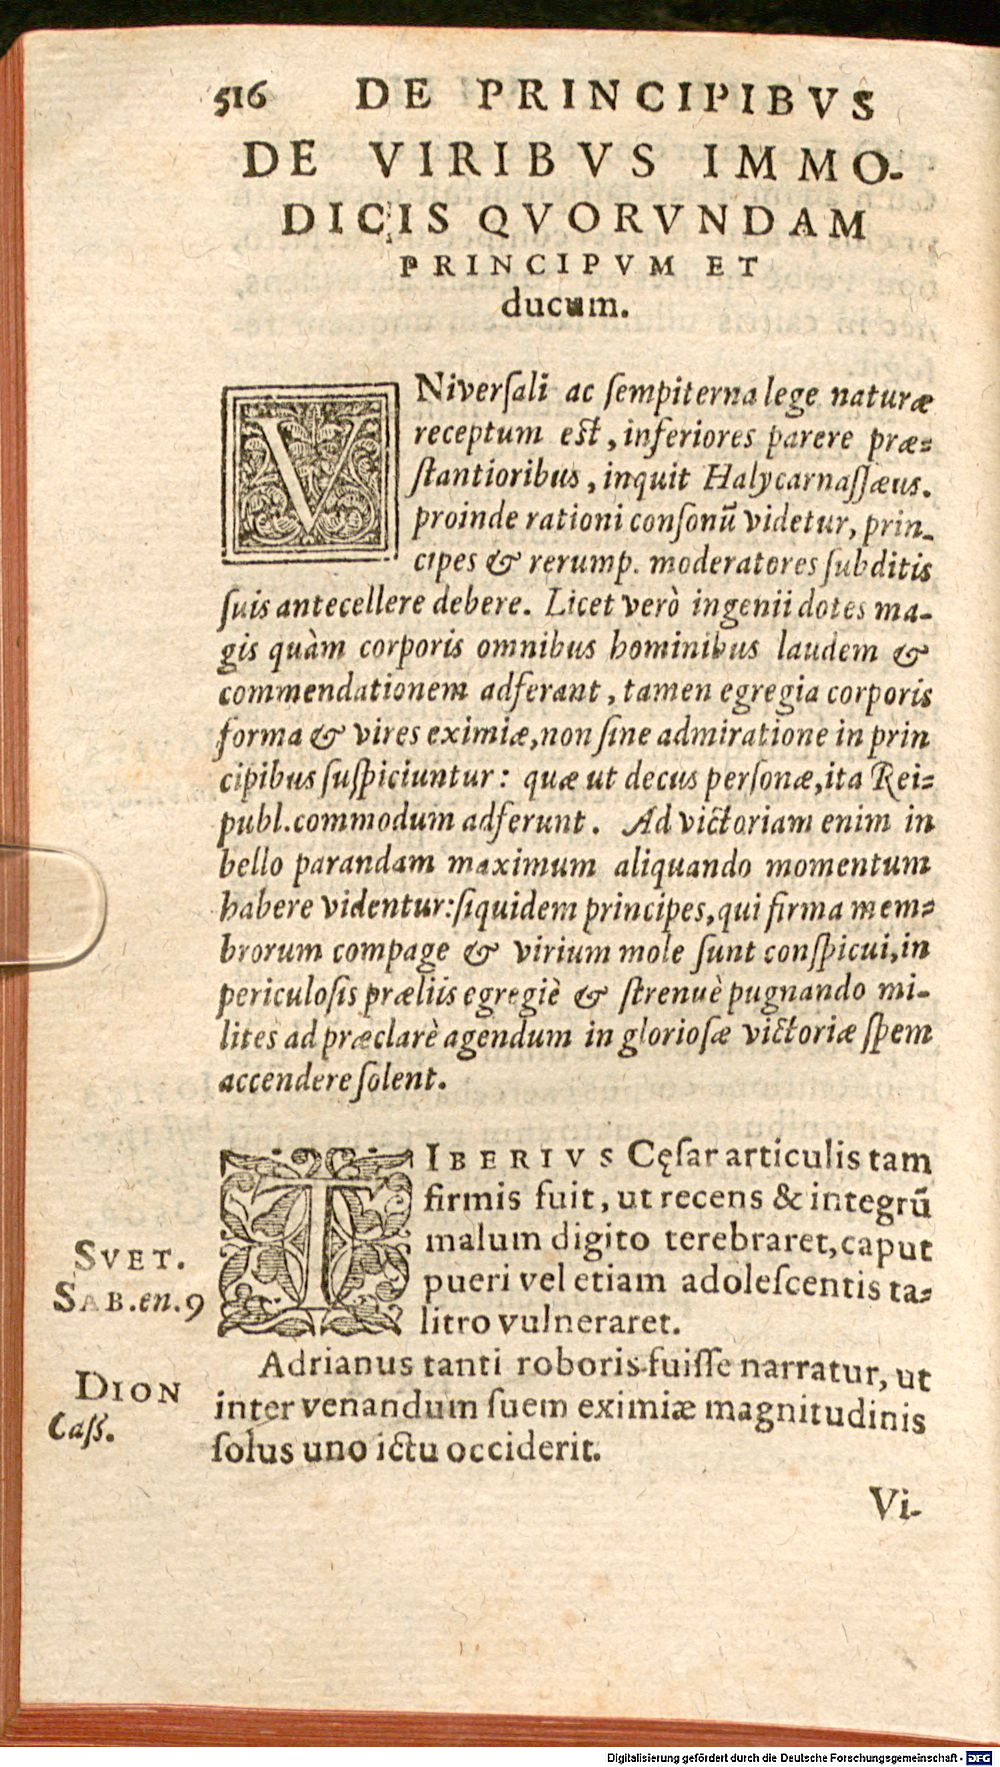 516 DE PRINCIPIBVS
DE VIRIBVS IMMO-
DICIS QVORVNDAM
PRINCIPVM ET
ducum.
VNiverſali ac ſempiterna lege naturæ
receptum eſt, inferiores parere præ-
ſtantioribus, inquit Halycarnaſſæus.
proinde rationi conſonũ videtur, prin-
cipes & rerump. moderatores ſubditis
ſuis antecellere debere. Licet verò ingenii dotes ma-
gis quàm corporis omnibus hominibus laudem &
commendationem adferant, tamen egregia corporis
forma & vires eximiæ, non ſine admiratione in prin
cipibus ſuſpiciuntur: quæ ut decus perſonæ, ita Rei-
publ. commodum adferunt. Ad victoriam enim in
bello parandam maximum aliquando momentum
habere videntur: ſiquidem principes, qui firma mem-
brorum compage & virium mole ſunt conſpicui, in
periculoſis præliis egregiè & ſtrenuè pugnando mi-
lites ad præclarè agendum in glorioſæ victoriæ ſpem
accendere ſolent.
TIBERIVS Cęſar articulis tam
firmis fuit, ut recens & integrũ
malum digito terebraret, caput
pueri vel etiam adoleſcentis ta-
litro vulneraret.
SVET.
SAB. en. 9
Adrianus tanti roboris fuiſſe narratur, ut
inter venandum ſuem eximiæ magnitudinis
ſolus uno ictu occiderit.
DION
Caſſ.
Vi-
Digitalisierung gefördert durch die Deutsche Forschungsgemeinschaft - DFG